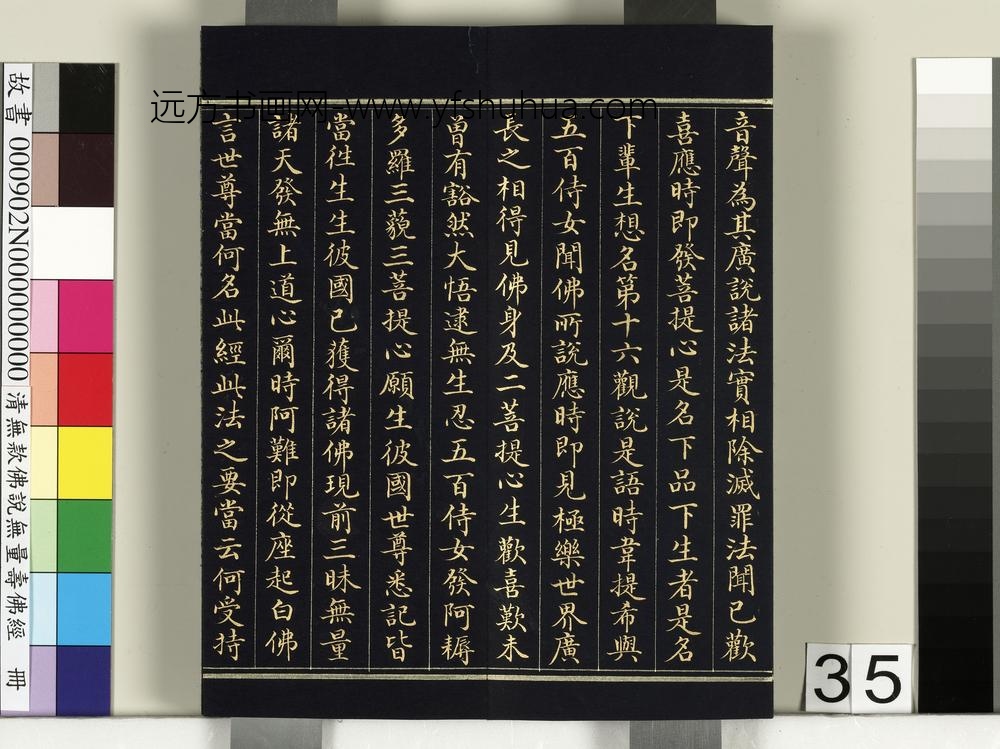 音聲為其廣說諸法實相除滅罪法聞已歡
喜應時即發菩提心是名下品下生者是名
下輩生想名第十六觀說是語時韋提希與
五百侍女聞佛所說應時即見極樂世界廣
長之相得見佛身及二菩提心生歡喜歎未
曾有豁然大悟逮無生忍五百侍女發阿耨
多羅三藐三菩提心願生彼國世尊悉記皆
當徃生生彼國已獲得諸佛現前三昧無量
諸天發無上道心爾時阿難即從座起白佛
言世尊當何名此經此法之要當云何受持
远方书画网-www.yfshuhua.com
故書 000902N000000000
清無款佛說無量壽佛經 冊
35